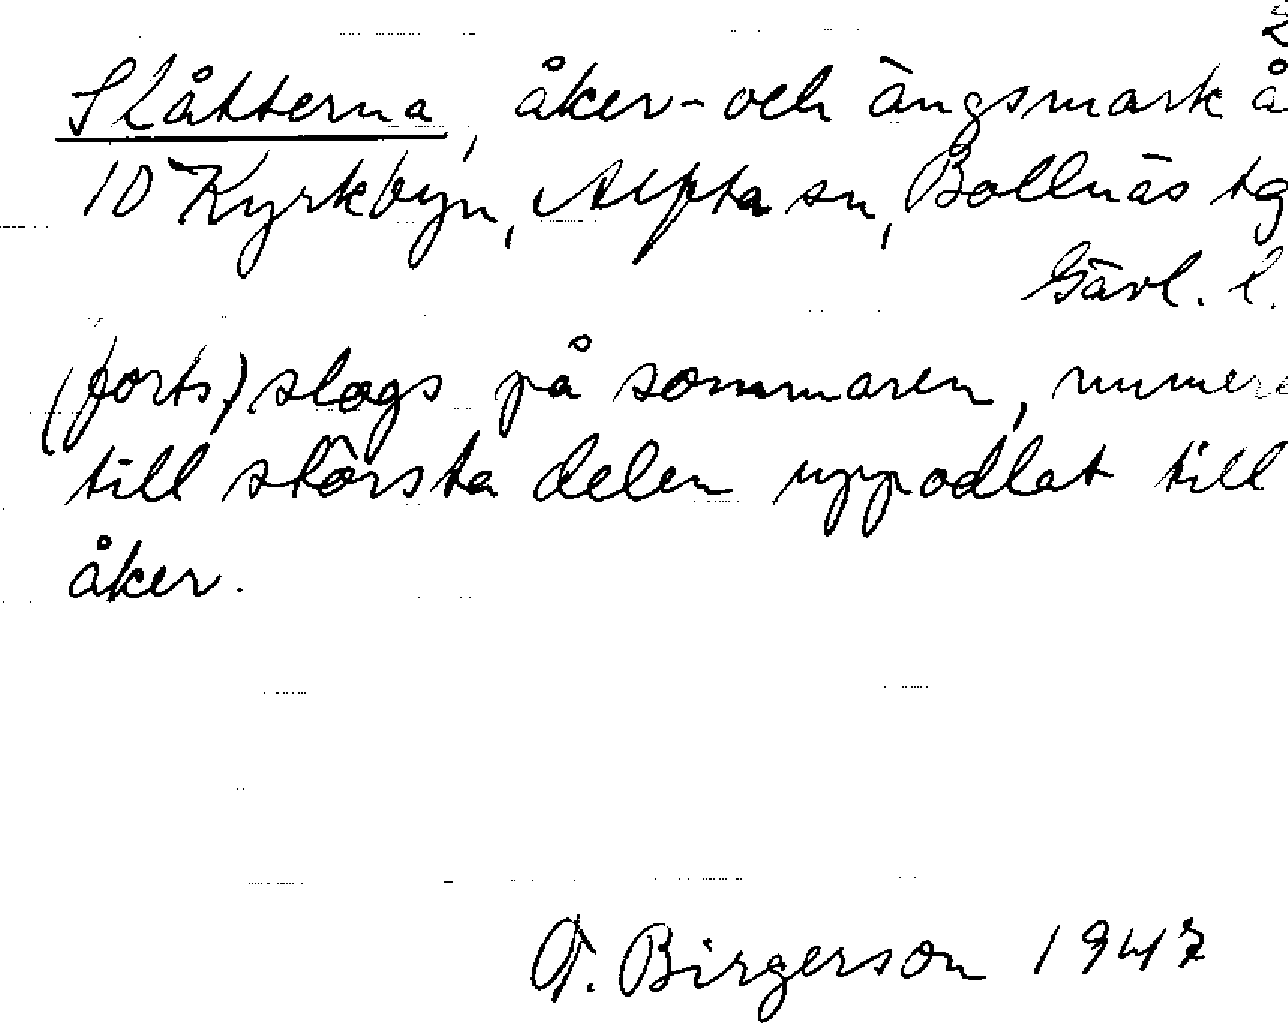 Slåtterna, åker- och ängsmark å
10 Kyrkbyn, Alfta sn, Bollnäs tg
Gävl. l.
(forts) slogs på sommaren, numera
till största delen uppodlat till
åker.
O. Birgerson 1947